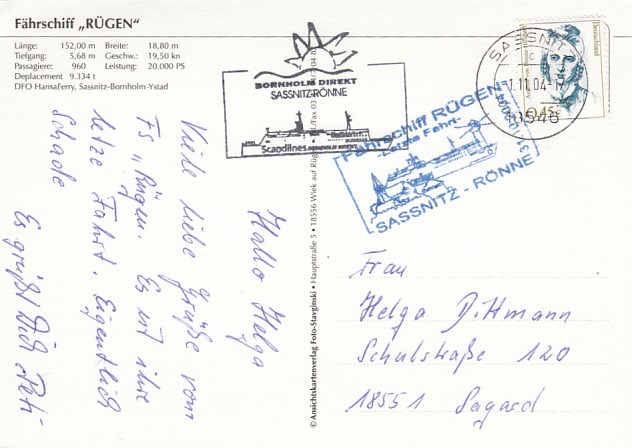 Fährschiff „RÜGEN“
Länge: 152,00 m Breite: 18,80 m
Tiefgang: 5,68 m Geschw.: 19,50 kn
Passagiere: 960 Leistung: 20.000 PS
Deplacement 9.334 t
DFO HansaFerry, Sassnitz-Bornholm-Ystad
Hallo Helga
Viele liebe Grüße vom
FS „Rügen. Es ist ihre
letze Fahrt. Eigentlich
Schade
Es grüßt Dich Petr
© Ansichtskartenverlag Foto-Stavginski • Hauptstraße 5 • 18556 Wiek auf Rüg
/Fax 03
BORNHOLM DIREKT
SASSNITZ-RÖNNE
Scandlines BORNHOLM DIREKT
Fährschiff RÜGEN
-Letzte Fahrt-
SASSNITZ - RÖNNE
SASSNITZ
c
11.04-
18546
Deutschland
0,45 €
Frau
Helga Dittmann
Schulstraße 120
18551 Sagard